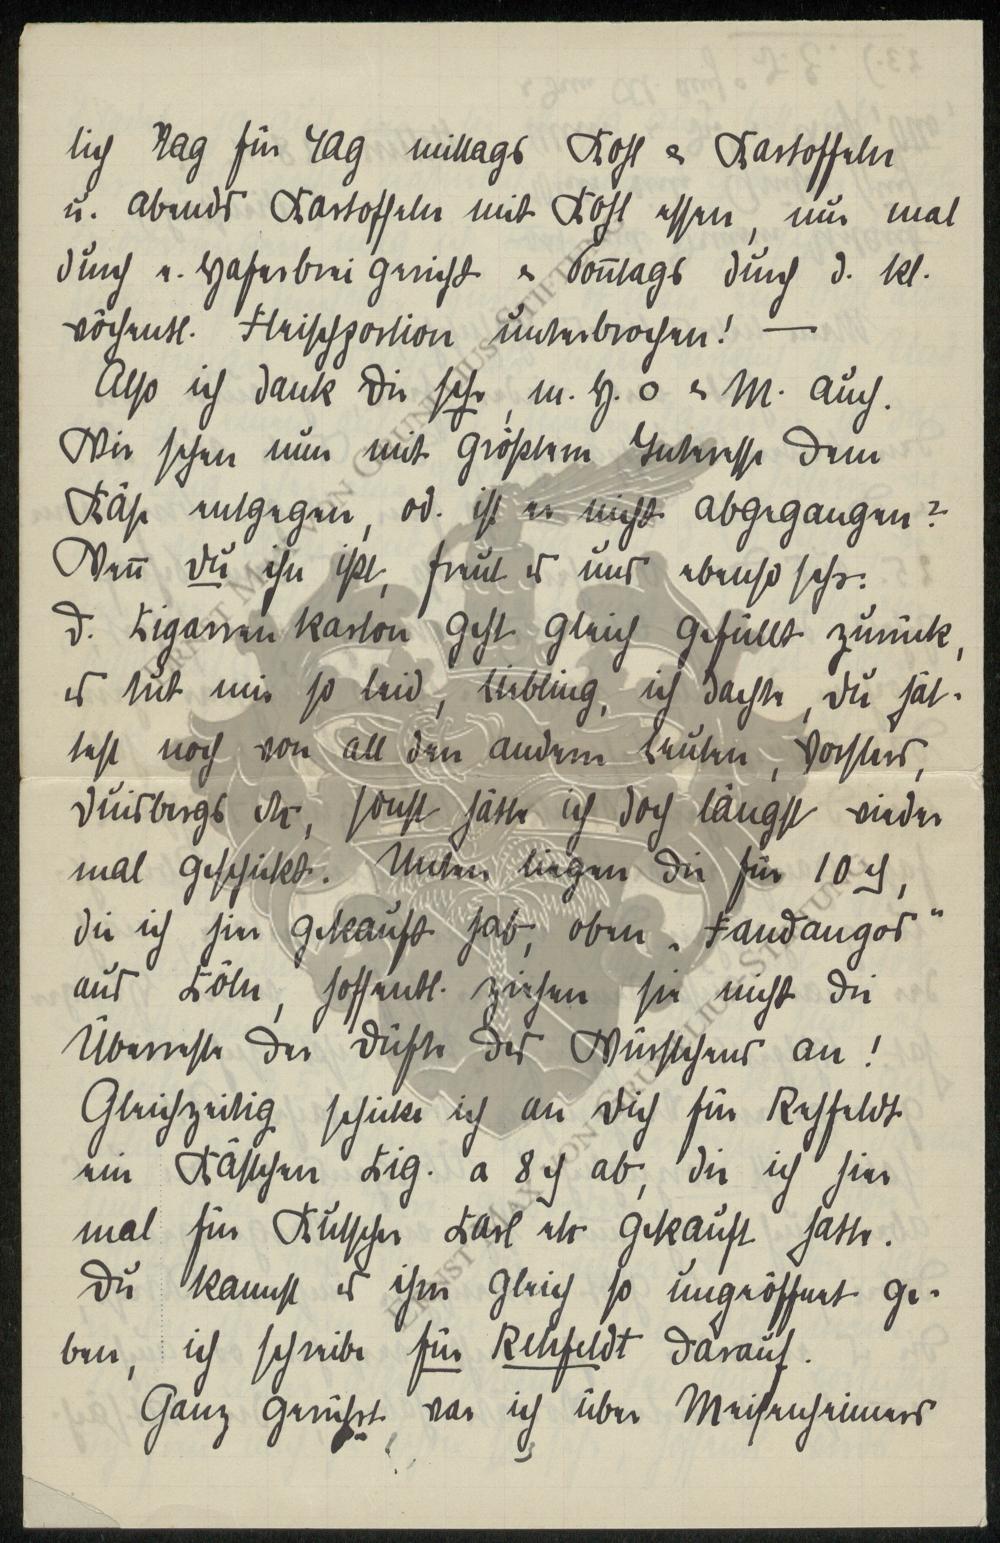 lich Tag für Tag mittags Kohl & Kartoffeln
u. abends Kartoffeln mit Kohl essen, nur mal
durch e. Haferbreigericht & Sonntags durch d. kl.
wöchentl. Fleischportion unterbrochen! —
Also ich dank Dir sehr, m. H. O & M. auch.
Wir sehen nun mit größtem Interesse dem
Käse entgegen, od. ist er nicht abgegangen?
Wenn Du ihn ißt, freut es uns ebenso sehr.
D. Zigarrenkarton geht gleich gefüllt zurück,
es tut mir so leid, Liebling, ich dachte, Du hät-
test noch von all den andern Leuten, Vorsters,
Duisbergs etc, sonst hätte ich doch längst wieder
mal geschickt. Unten liegen die für 10 ₰,
die ich hier gekauft hab, oben „Fandangos"
aus Köln, hoffentl. ziehen sie nicht die
Überreste der Düfte des Würstchens an!
Gleichzeitig schicke ich an Dich für Rehfeldt
ein Kästchen Zig. a 8 ₰ ab, die ich hier
mal für Kutscher Karl etc gekauft hatte.
Du kannst es ihm gleich so ungeöffnet ge-
ben, ich schreibe für Rehfeldt darauf.
Ganz gerührt war ich über Meisenheimers
ERNST MAX VON GRUNELIUS-STIFTUNG
ERNST MAX VON GRUNELIUS-STIFTUNG